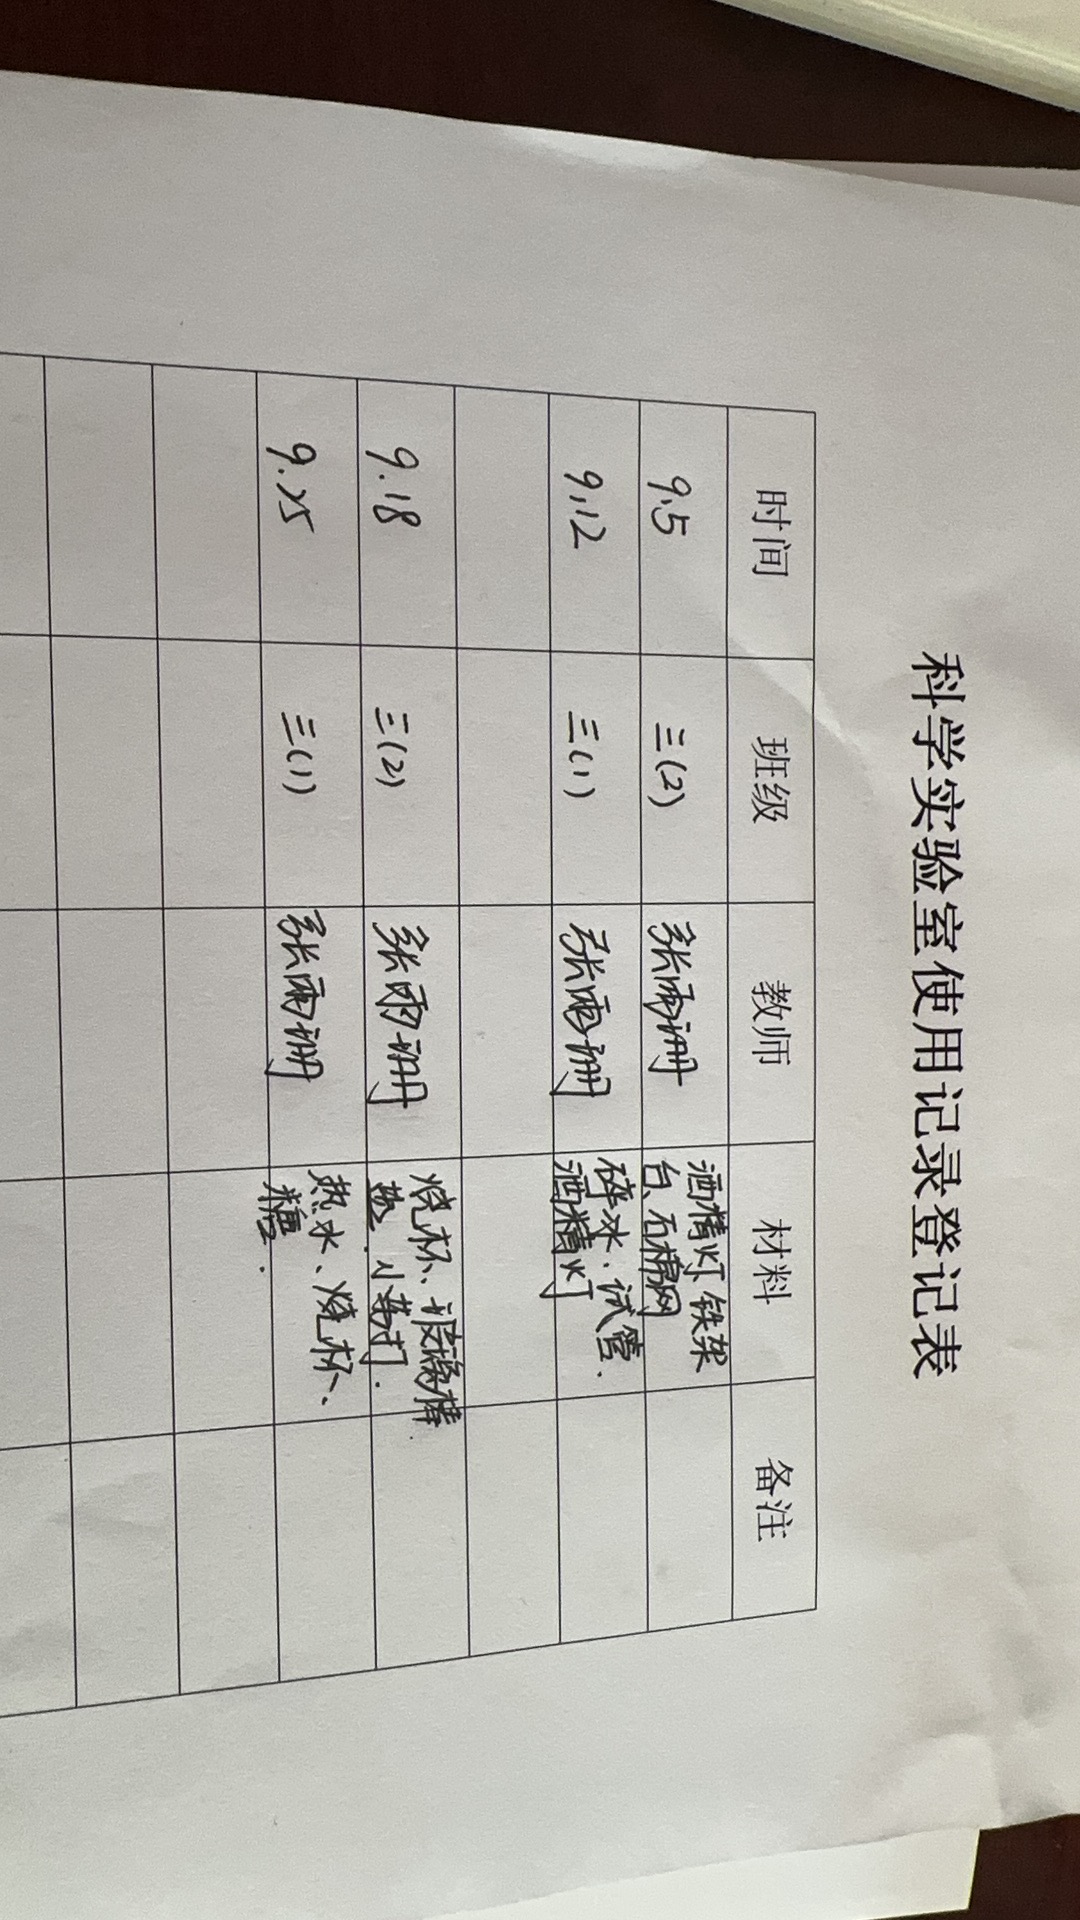 科学实验室使用记录登记表
时间 班级 教师 材料 备注
9.5 三(2) 张雨珊 酒精灯 铁架
台、石棉网
9.12 三(1) 张雨珊 碎冰、试管.
酒精灯
9.18 三(2) 张雨珊 烧杯、玻璃棒
盐、小苏打.
9.25 三(1) 张雨珊 热水、烧杯、
糖.